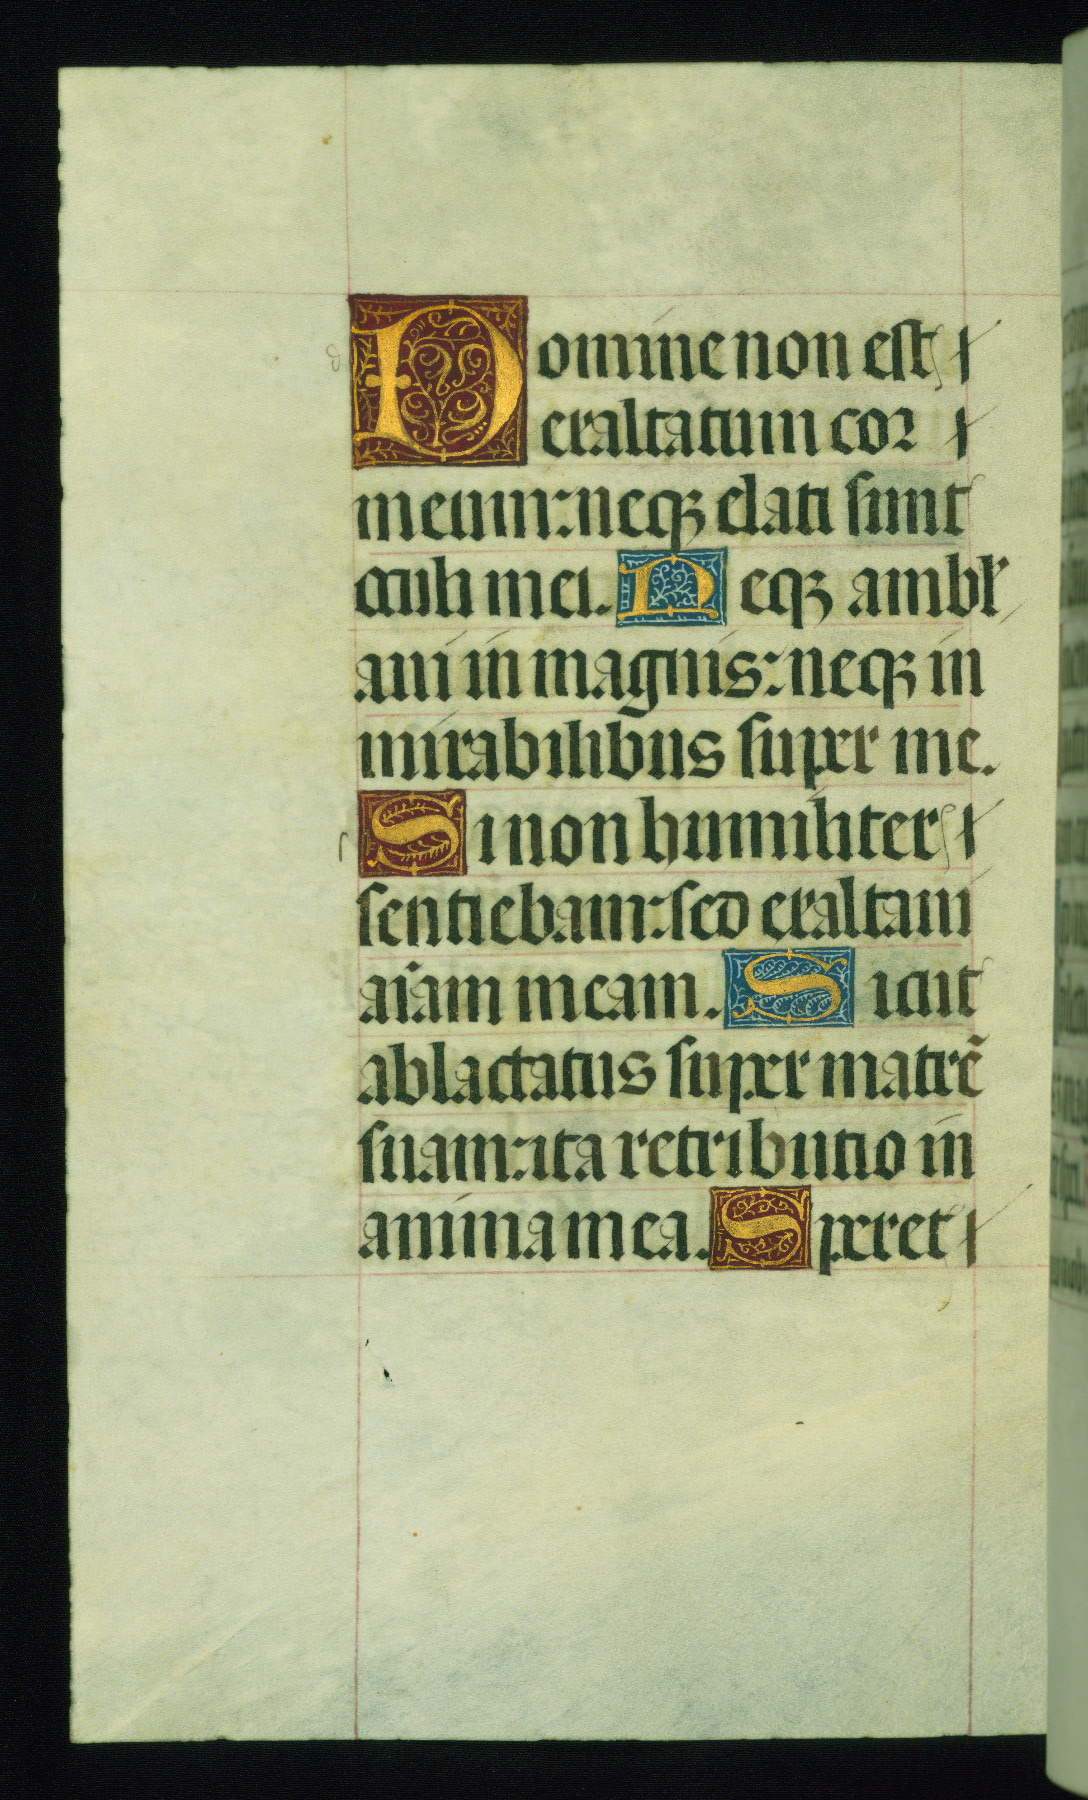 Domine non est
exaltatum cor
meum: neqꝫ elati sunt
oculi mei. Neqꝫ ambl̛
aui in magnis: neqꝫ in
mirabilibus super me.
Si non humiliter
sentiebam: sed exaltaui
aīam meam. Sicut
ablactatus super matrē
suam: ita retributio in
anima mea. Speret